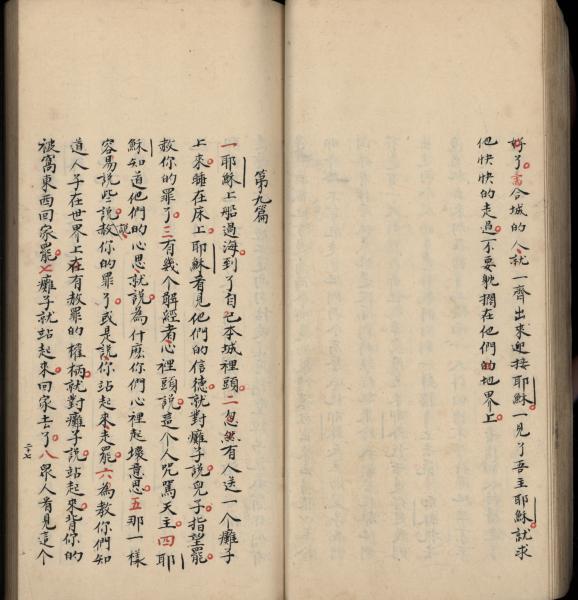 好了言合城的人就一齊出來迎接耶穌一見了吾主耶穌就求
他快快的走過不要躭擱在他們的地界上
第九篇
一耶穌上船過海到了自己本城裡頭二忽然有人送一个癱子
上來睡在床上耶穌看見他們的信德就對癱子說兒子指望罷
赦你的罪了三有幾个解經者心裡頭說這个人咒罵天主四耶
穌知道他們的心思就說為什麽你們心裡起壞意思五那一樣
容易說些說赦你的罪了或是說你站起來走罷六為教你們知
道人子在世界上在有赦罪的權柄就對癱子說站起來背你的
被窩東西回家罷七癱子就站起來回家去了八眾人看見這个
二十七